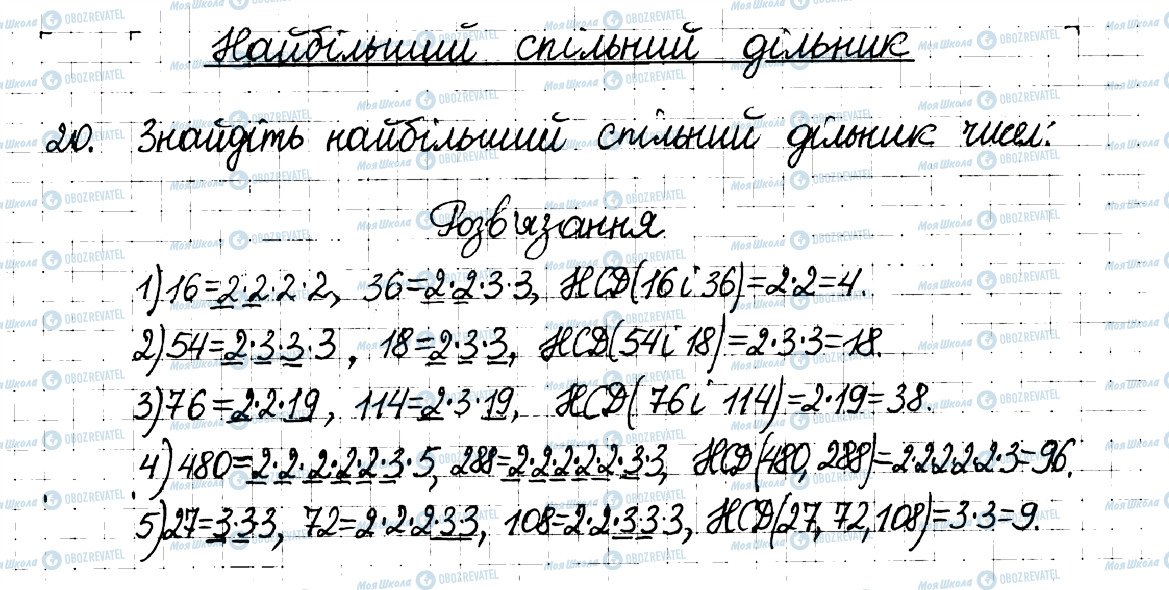 Найбільший спільний дільник
20. Знайдіть найбільший спільний дільник чисел:
Розв'язання
1) 16=2·2·2·2, 36=2·2·3·3, НСД(16 і 36)=2·2=4.
2) 54=2·3·3·3, 18=2·3·3, НСД(54 і 18)=2·3·3=18.
3) 76=2·2·19, 114=2·3·19, НСД(76 і 114)=2·19=38.
4) 480=2·2·2·2·2·3·5, 288=2·2·2·2·2·3·3, НСД(480, 288)=2·2·2·2·2·3=96.
5) 27=3·3·3, 72=2·2·2·3·3, 108=2·2·3·3·3, НСД(27, 72, 108)=3·3=9.
Моя Школа OBOZREVATEL